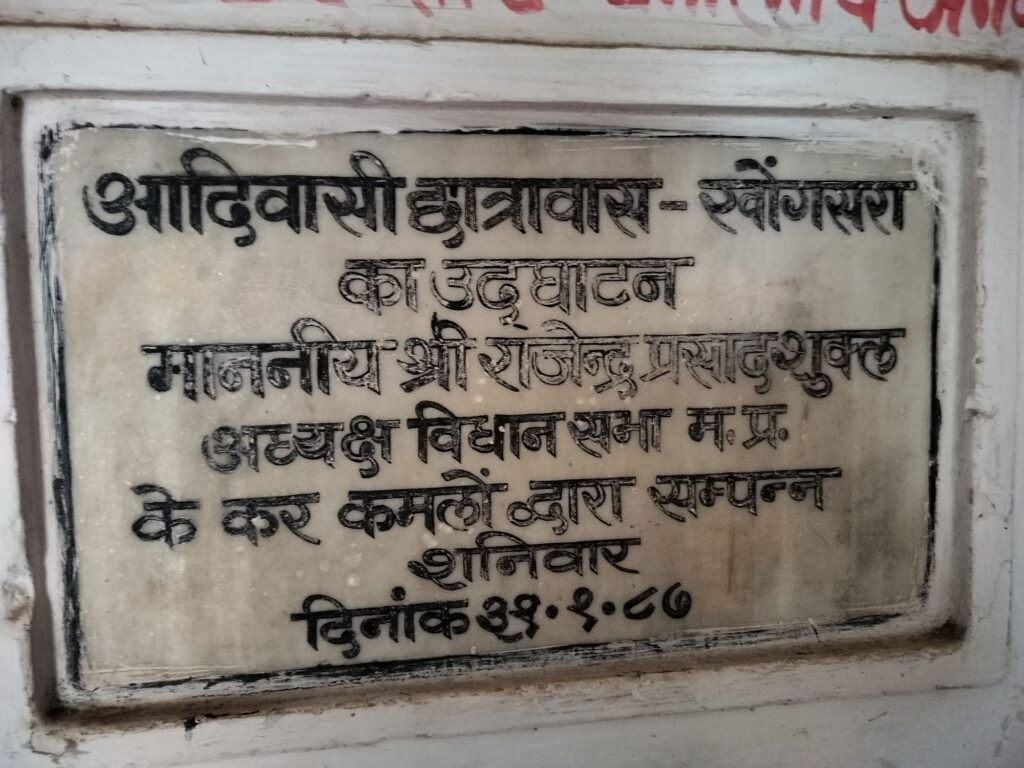 आदिवासी छात्रावास - खोंगसरा
का उद्घाटन
माननीय श्री राजेन्द्र प्रसाद शुक्ल
अध्यक्ष विधान सभा म. प्र.
के कर कमलों द्वारा सम्पन्न
शनिवार
दिनांक ३१.१.८७